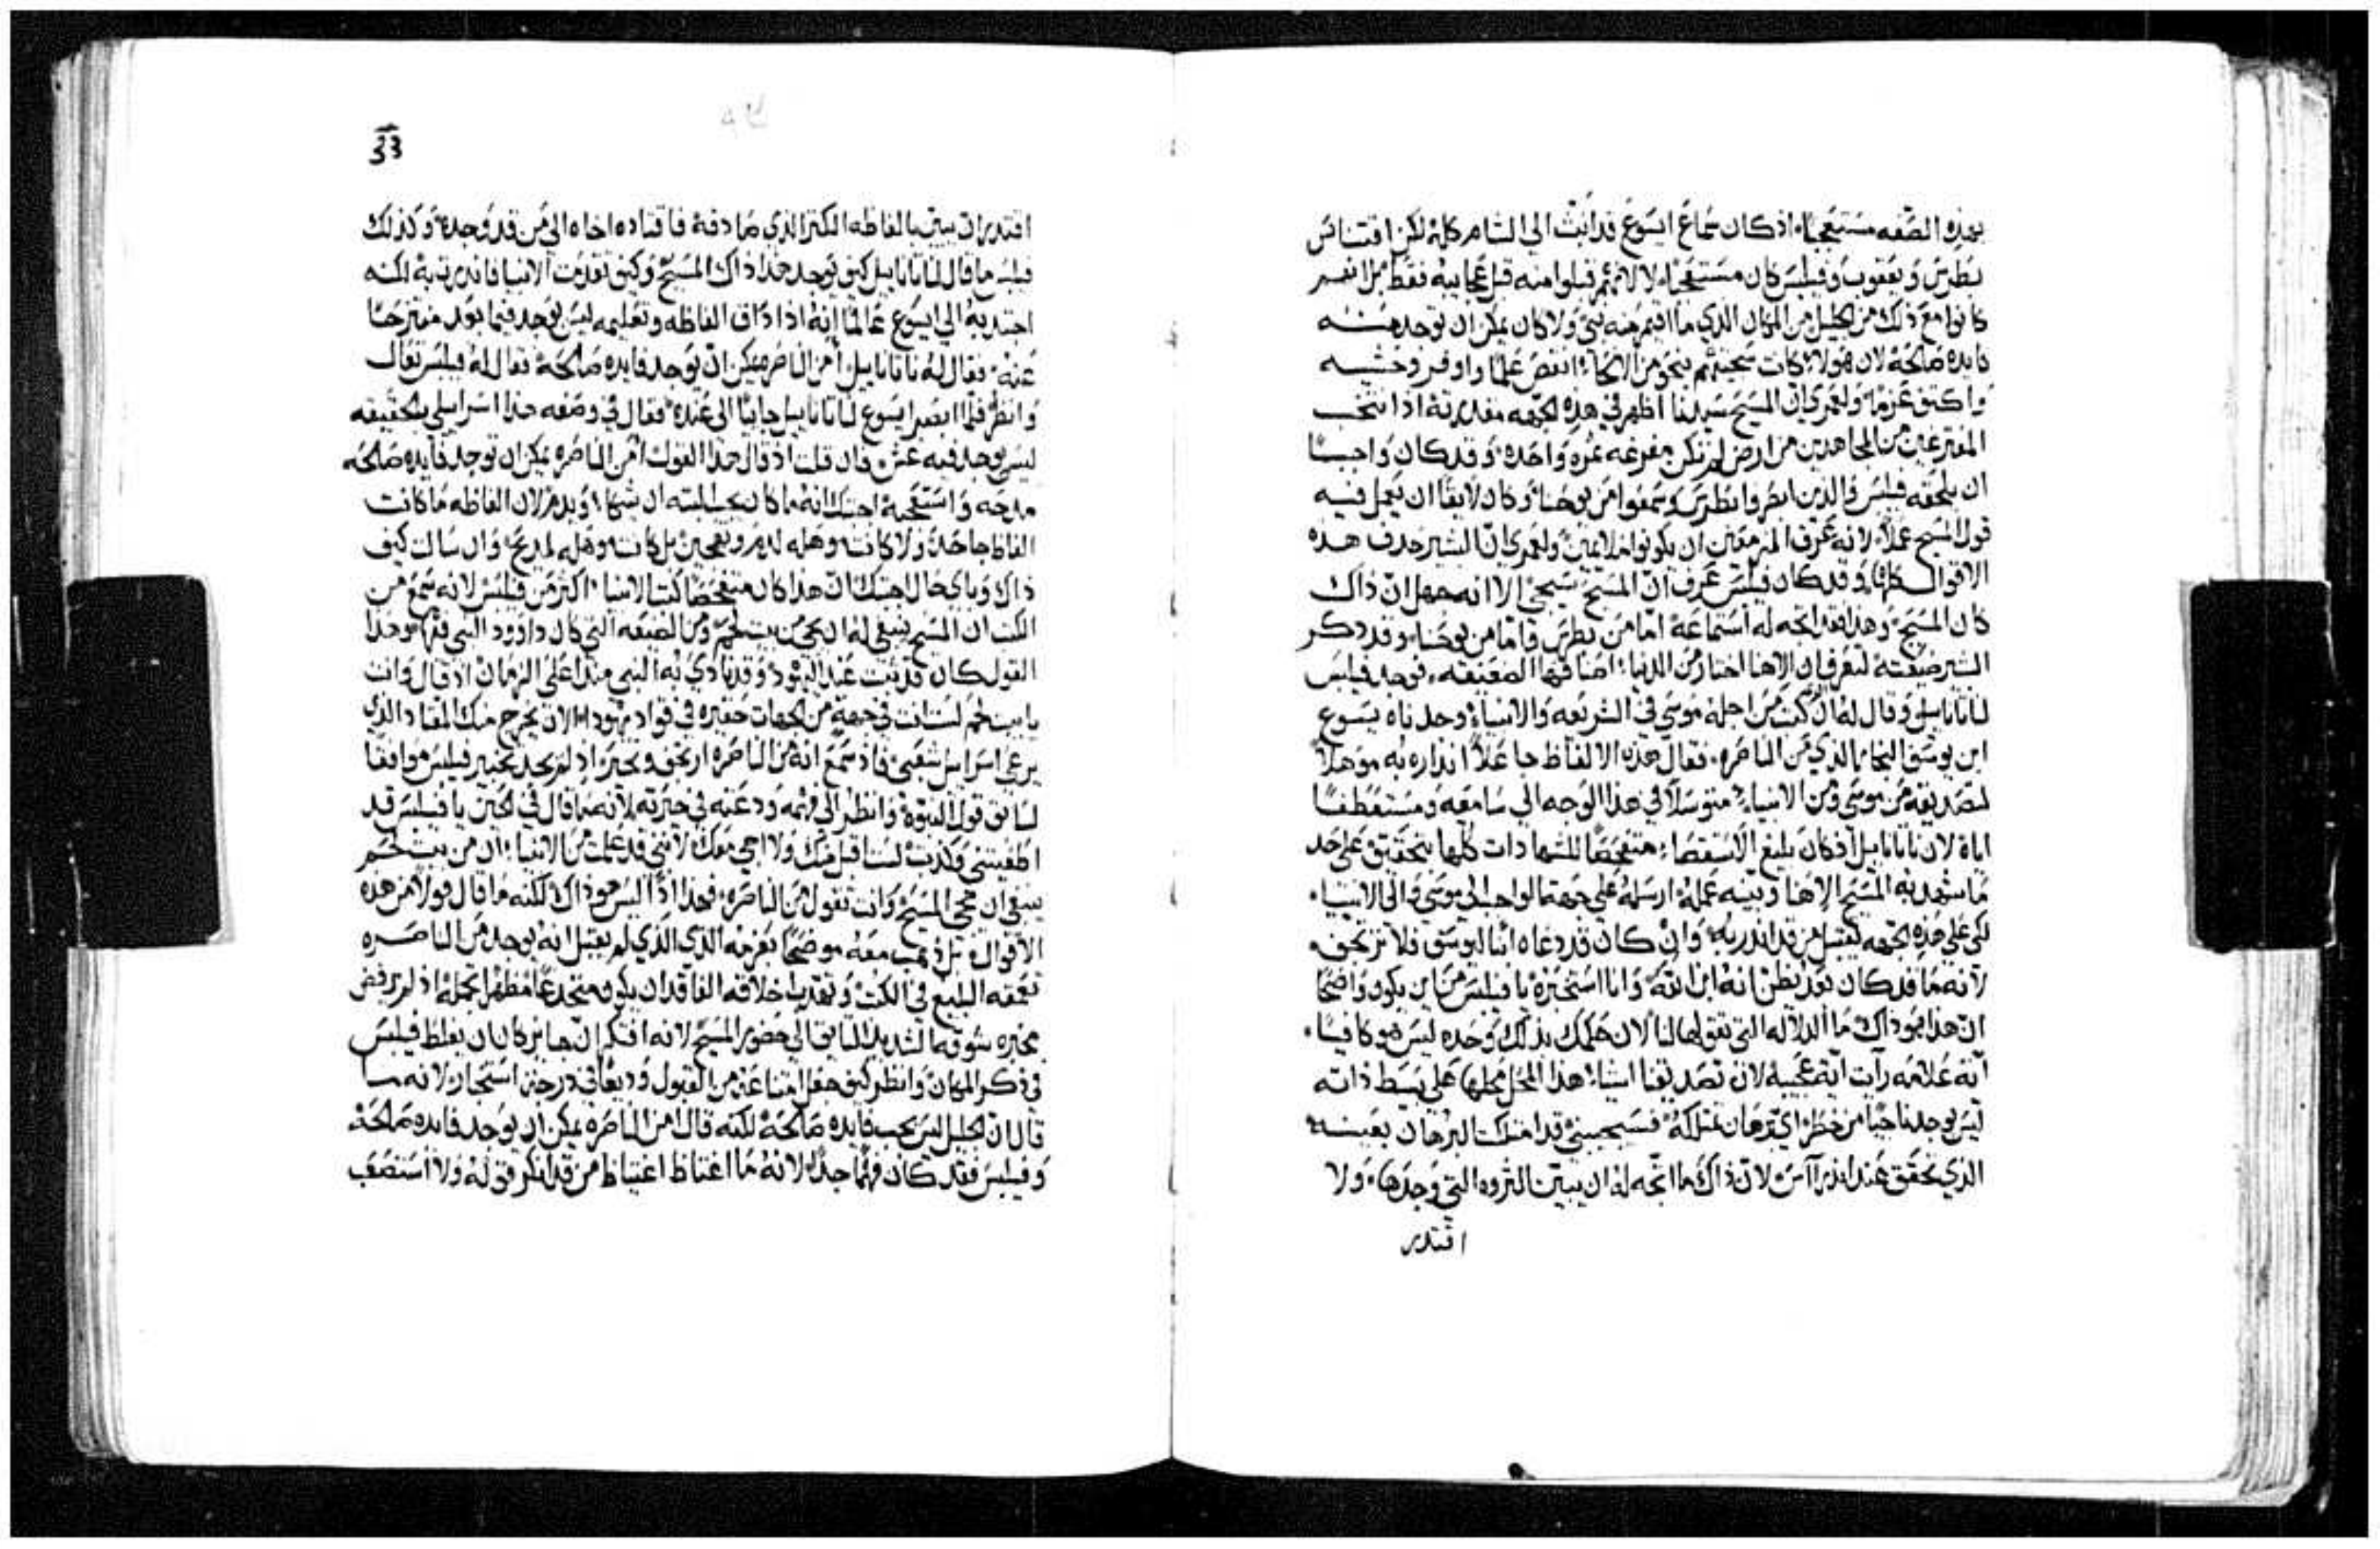 بهذه الصفه مستعجباً اذ كان سماع ايسوع قد انبث الي الشام كله لكن اقتناص
بطرس ويعقوب وفيلبس كان مستعجباً لا لانهم قبلوا منه قبل عجايبه فقط بل انهم
كانوا مع ذلك من الجليل من المكان الذي ما اقيم منه نبي ولا كان يمكن ان توجد منه
فايده صالحة لان هولاء كانت سجيتهم بنحو من الانحاء انقص علماً واوفر وحشيه
واكتف عزما ولعمري ان المسيح سيدنا اظهر في هذه الجهه مقدرته اذ انتخب
من المجاهدين من ارض لم تكن مفرغه ثمره واحده وقد كان واجباً
ان يلحقه فيلبس والذين ابصروا بطرس وسمعوا من يوحنا وكان لايقاً ان يعمل فيه
قول المسيح عملاً لانه عرف المزمعين ان يكونوا ملايمين ولعمري ان البشير حدف هذه
الاقوال كلها وقد كان فيلبس عرف ان المسيح سيجي الا انه جهل ان ذاك
كان المسيح وهذا فقد اتجه له استماعة اما من بطرس واما من يوحنا وقد ذكر
البشير ضيعته لتعرف ان الاهنا اختار من الدنيا اصنافها الضعيفه فوجد فيلبس
لناتانابيل وقال له ان كتب من اجله موسي في الشريعه والانبياء وجدناه يسوع
ابن يوسف النجار الذي من الناصره فقال هذه الالفاظ جاعلاً انذاره به موهلاً
لتصديقه من موسي ومن الانبياء متوسلاً في هذا الوجه الي سامعه ومستعطفاً
اياه لان ناتانابيل اذ كان بليغ الاستقصاء متفحصاً للشهادات كلها بتحقيق علي حد
ما شهد به المسيح الاهنا وبينه عمله ارسله علي جهة الواجب الي موسي والي الانبياء
لكي علي هذه الجهه يقتبل من قد انذر به وان كان قد دعاه ابنا ليوسف فلا ترتجف
لانه ما قد كان بعد يظن انه ابن الله وانا استخبره يا فيلبس من اين يكون واضحاً
ان هذا هو ذاك ما الدلاله التي تقولها لنا لان حكمك بذلك وحده ليس هو كافياً
اية علامه رأيت اية عجيبه لان تصديقنا اشياء هذا المحل محلها علي بسيط ذاته
ليس يوجد ناجياً من خطر اي برهان تمتلكه فسيجيبني قد امتلكت البرهان بعينه
الذي تحقق عند اندراس لان ذاك ما اتجه له ان يبين الثروه التي وجدها ولا
اقتدر
اقتدر ان يبين بالفاظه الكنز الذي صادفه فاقتاده اخاه الي من قد وجده وكذلك
فيلبس ما قال لناتانابيل كيف يوجد هذا ذاك المسيح وكيف تقدمت الانبيا فانذرت به لكنه
اجتذبه الي ايسوع عالماً انه اذا ذاق الفاظه وتعليمه ليس يوجد فيما بعد منتزحاً
عنه فقال له ناتانابيل أمن الناصره يمكن ان توجد فايده صالحة فقال له فيلبس تعال
وانظر فلما ابصر ايسوع لناتانابيل جايياً الي عنده فقال في وصفه هذا اسراييلي بالحقيقه
ليس يوجد فيه غش فان قلت اذ قال هذا القول أمن الناصره يمكن ان توجد فايده صالحه
مدحه واستعجبه اجبتك انه ما كان يجب البته ان يشكا ويذم لان الفاظه ما كانت
الفاظ جاحد ولا كانت وهله لذم وتهجين بل كانت وهله لمديح وان سالت كيف
ذاك وباي حال اجبتك ان هذا كان متفحصاً كتب الانبيا اكثر من فيلبس لانه سمع من
الكتب ان المسيح ينبغي له ان يجي من بيت لحم ومن الضيعه التي كان داوود النبي فيها وهذا
القول كان قد ثبت عند اليهود وقد نادي به النبي منذ اعلي الزمان اذ قال وانت
يا بيت لحم لست انت في جهة من الجهات حقيره في قواد يهودا لان يخرج منك المقتاد الذي
يرعي اسراييل شعبي فاذ سمع انه من الناصره ارتجف وتحير اذ لم يجد تخبير فيلبس موافقاً
لسابق قول النبوة وانظر الي فهمه ودعته في حيرته لانه ما قال في الحين يا فيلبس قد
اطغيتني وكذبت لست اقبل منك ولا اجي معك لانني قد علمت من الانبياء ان من بيت لحم
ينبغي ان يجي المسيح وانت تقول من الناصره فهذا اذاً اليس هو ذاك لكنه ما قال قولاً من هذه
الاقوال بل ذهب معه موضحاً بعزمه الذي لم يقتبل انه يوجد من الناصره
تفقهه البليغ في الكتب وتهذيب اخلاقه الفاقد ان يكون منخدعاً مظهراً بجملة اذ لم يرفض
مخبره شوقه الشديد السابق الي حضور المسيح لانه افتكر ان جايزاً كان ان يغلط فيلبس
في ذكر المكان وانظر كيف جعل امتناعه من القبول وديعاً في درجة استخبار لانه ما
قال ان الجليل ليس يجب فايده صالحة لكنه قال أمن الناصره يمكن ان توجد فايده صالحة
وفيلبس فقد كان فهماً جداً لانه ما اغتاظ اغتياظ من قد انكر قوله ولا استصعب